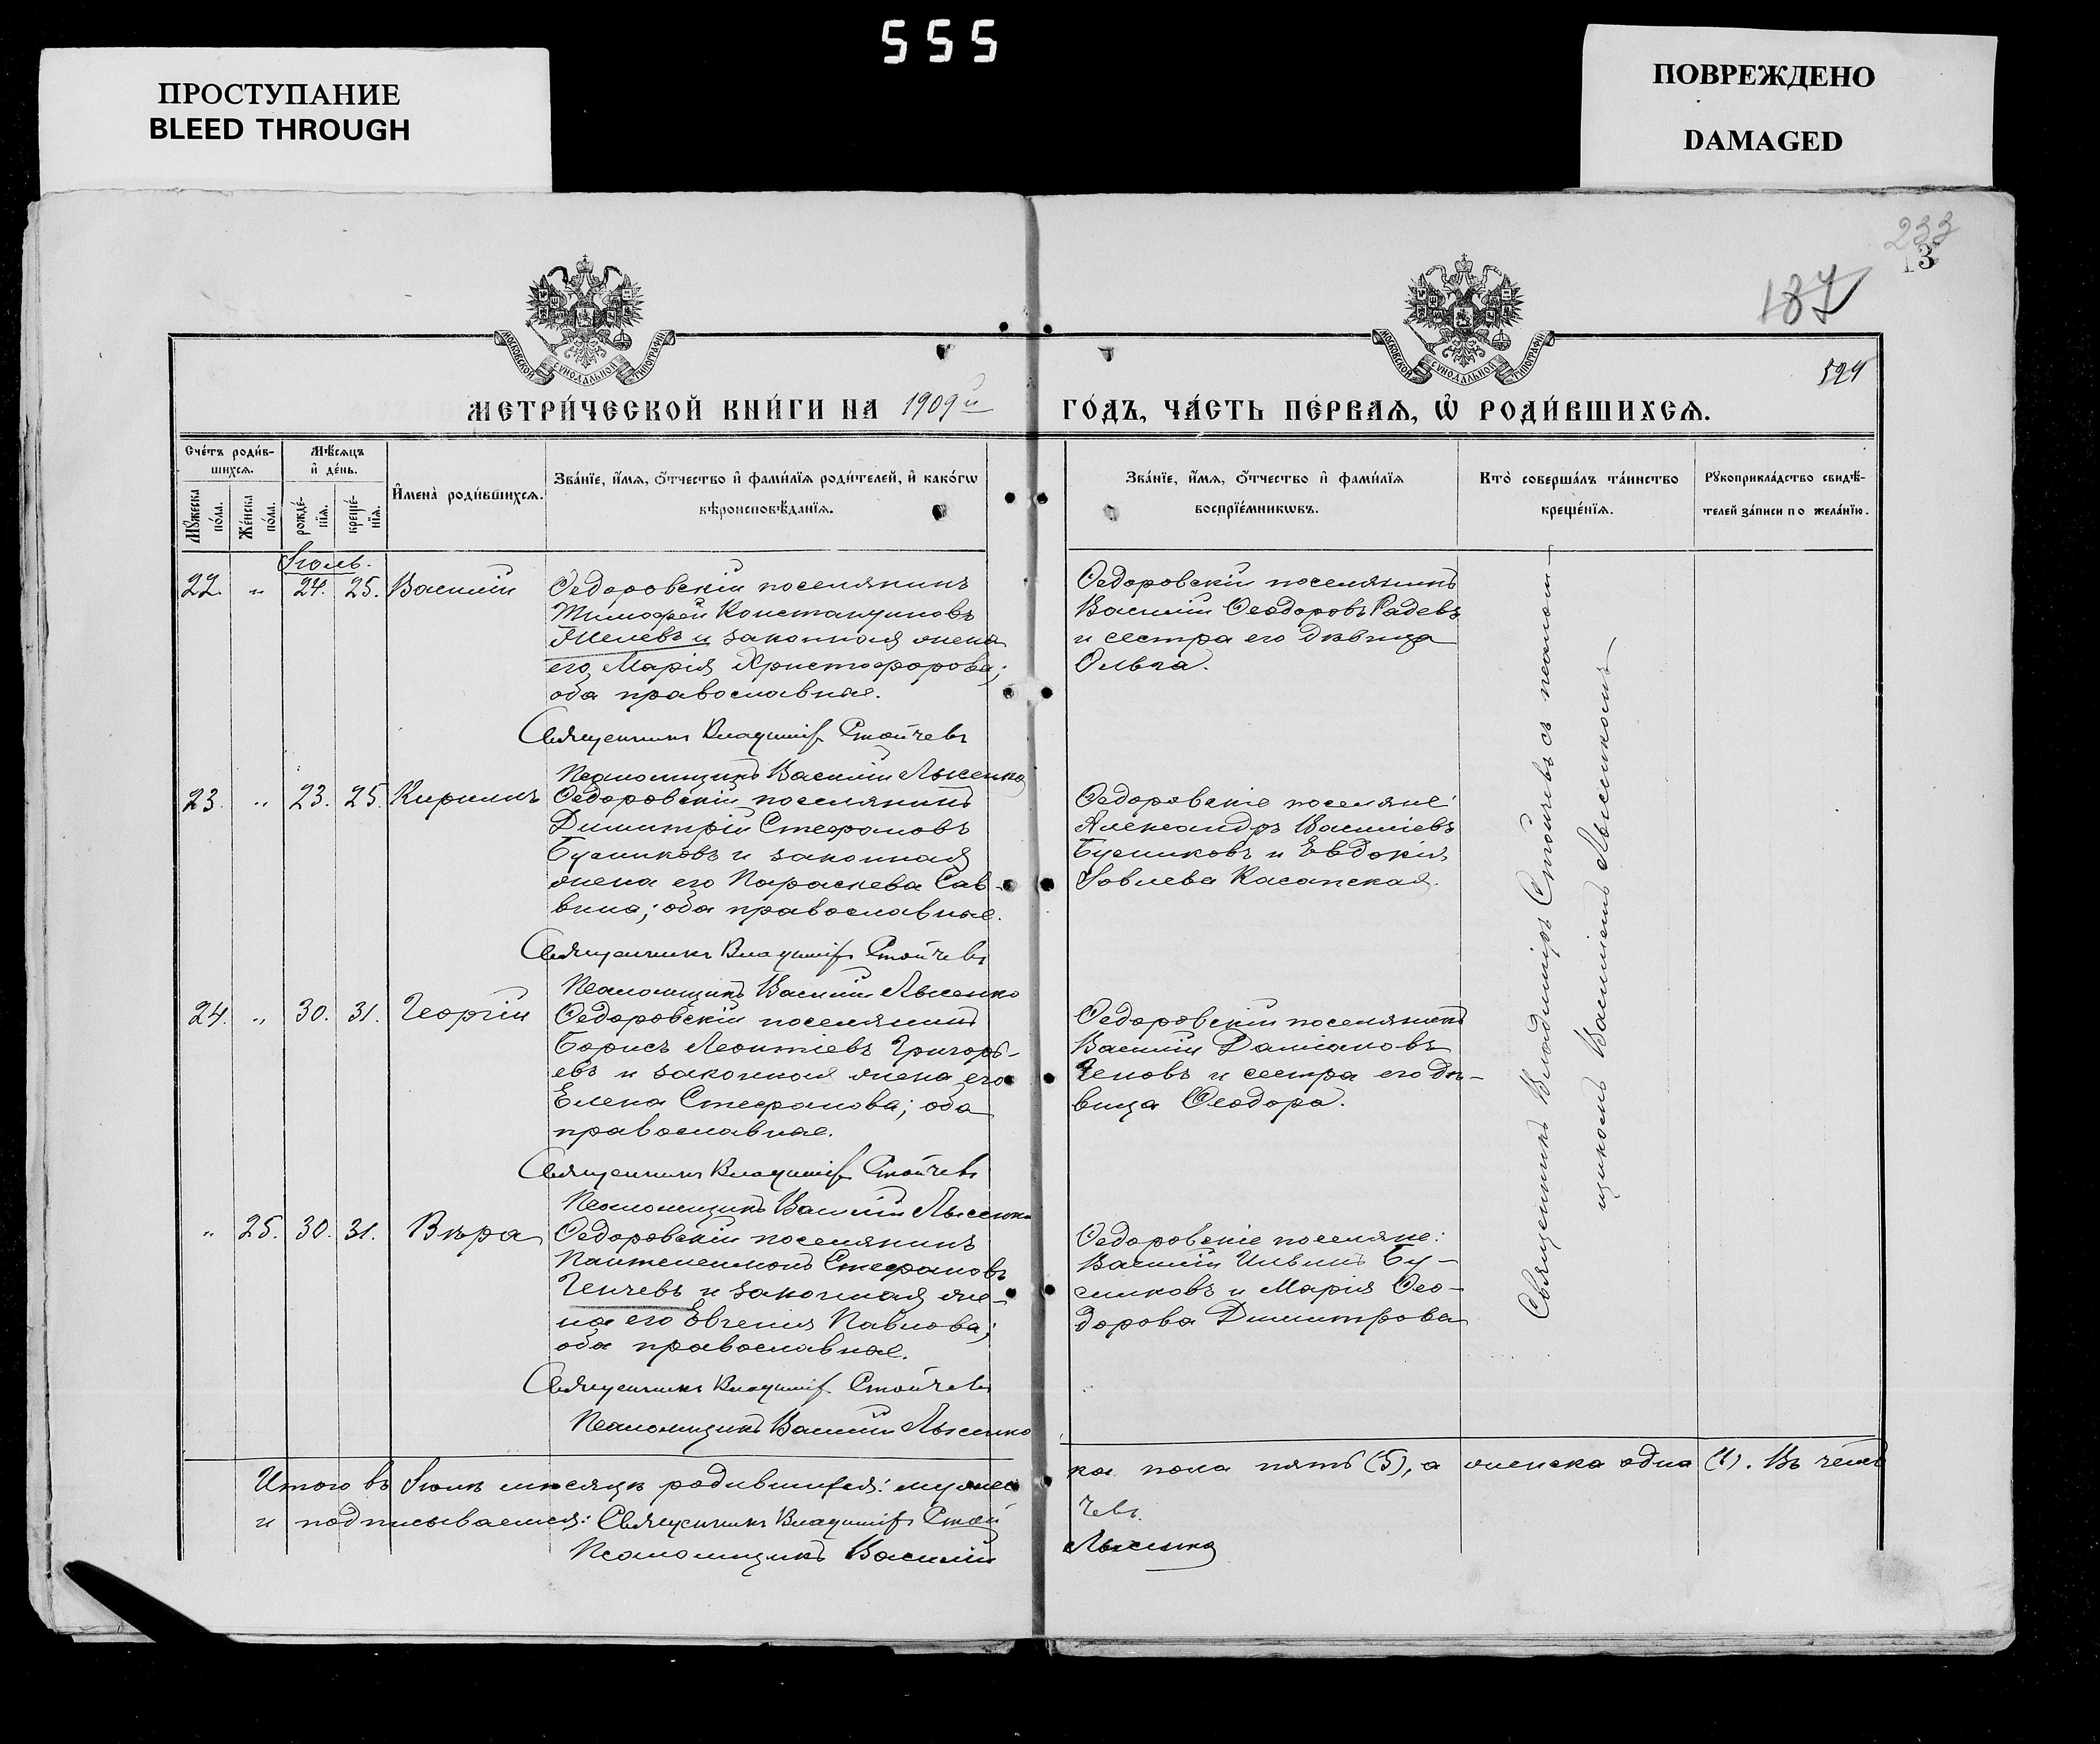 555
ПРОСТУПАНИЕ
BLEED THROUGH
ПОВРЕЖДЕНО
DAMAGED
233
13
187
МОСКОВСКОЙ СѴНОДАЛЬНОЙ ТИПОГРАФІИ
МОСКОВСКОЙ СѴНОДАЛЬНОЙ ТИПОГРАФІИ
МЕТРИ́ЧЕСКОЙ КНИ́ГИ НА 1909й ГО́ДЪ, ЧА́СТЬ ПЕ́РВАѦ, Ѡ҆ РОДИ́ВШИХСѦ.
Сче́тъ роди́в-
шихсѧ.
Мѹ́жеска
по́ла.
Же́нска
по́ла.
Мѣ́сѧцъ
и҆ де́нь.
рожде́-
нїѧ.
креще́-
нїѧ.
И҆мена̀ роди́вшихсѧ.
Зва́нїе, и҆́мѧ, ѻ҆́тчество и҆ фами́лїѧ роди́телей, и҆ како́гѡ
вѣроисповѣ́данїѧ.
Зва́нїе, и҆́мѧ, ѻ҆́тчество и҆ фами́лїѧ
воспрїе́мникѡвъ.
Кто̀ соверша́лъ та́инство
креще́нїѧ.
Рѹкоприкла́дство свидѣ́-
телей за́писи по жела́нїю.
Іюль.
22. " 24. 25. Василій
Ѳедоровскій поселянинъ
Тимоѳей Константиновъ
Желевъ и законная жена
его Марія Христофорова;
оба православные.
Священникъ Владиміръ Стойчевъ
Псаломщикъ Василій Лысенко
Ѳедоровскій поселянинъ
Василій Ѳеодоровъ Радевъ
и сестра его дѣвица
Ольга.
23. " 23. 25. Кириллъ
Ѳедоровскій поселянинъ
Димитрій Стефановъ
Бусниковъ и законная
жена его Параскева Сав-
вина; оба православные.
Священникъ Владиміръ Стойчевъ
Псаломщикъ Василій Лысенко
Ѳедоровскіе поселяне:
Александръ Василіевъ
Бусниковъ и Евдокія
Іовлева Касапская.
24. " 30. 31. Георгій
Ѳедоровскій поселянинъ
Борисъ Леонтіевъ Григорь-
евъ и законная жена его
Елена Стефанова; оба
православные.
Священникъ Владиміръ Стойчевъ
Псаломщикъ Василій Лысенко
Ѳедоровскій поселянинъ
Василій Даміановъ
Геновъ и сестра его дѣ-
вица Ѳеодора.
" 25. 30. 31. Вѣра
Ѳедоровскій поселянинъ
Пантелеимонъ Стефановъ
Генчевъ и законная же-
на его Евгенія Павлова;
оба православные.
Священникъ Владиміръ Стойчевъ
Псаломщикъ Василій Лысенко
Ѳедоровскіе поселяне:
Василій Ильинъ Бу-
сниковъ и Марія Ѳео-
дорова Димитрова
Священникъ Владиміръ Стойчевъ съ псалом-
щикомъ Василіемъ Лысенкомъ
Итого въ Іюлѣ мѣсяцѣ родившихся: мужес-
ка пола пять (5), а женска одна (1). Въ чемъ
и подписываемся: Священникъ Владиміръ Стой
чевъ.
Псаломщикъ Василій Лысенко